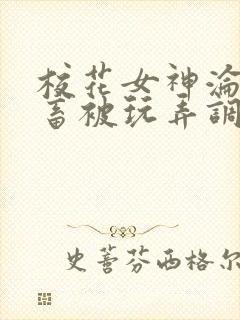 校花女神淪
畜被玩弄調
史蒂芬西格尔